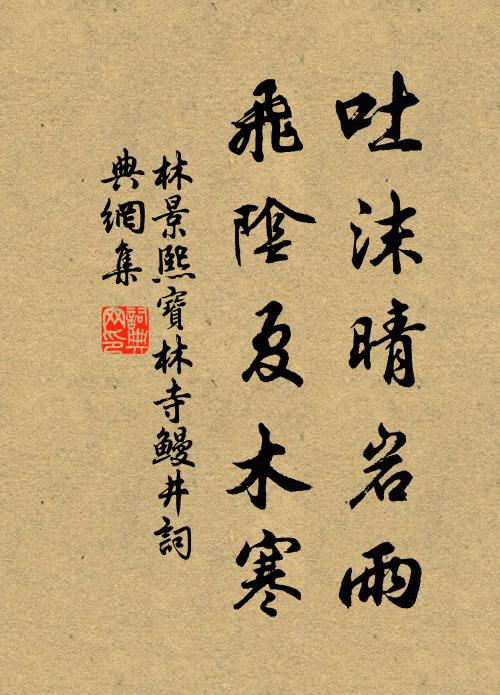 吐沫晴岩雨
飛陰夏木寒
林景熙寶林寺鰻井詞
典網集
詞典网印